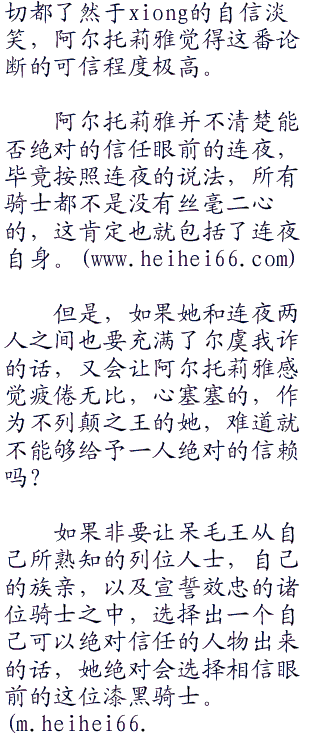 切都了然于xiong的自信淡
笑，阿尔托莉雅觉得这番论
断的可信程度极高。
阿尔托莉雅并不清楚能
否绝对的信任眼前的连夜，
毕竟按照连夜的说法，所有
骑士都不是没有丝毫二心
的，这肯定也就包括了连夜
自身。(www.heihei66.com)
但是，如果她和连夜两
人之间也要充满了尔虞我诈
的话，又会让阿尔托莉雅感
觉疲倦无比，心塞塞的，作
为不列颠之王的她，难道就
不能够给予一人绝对的信赖
吗？
如果非要让呆毛王从自
己所熟知的列位人士，自己
的族亲，以及宣誓效忠的诸
位骑士之中，选择出一个自
己可以绝对信任的人物出来
的话，她绝对会选择相信眼
前的这位漆黑骑士。
(m.heihei66.